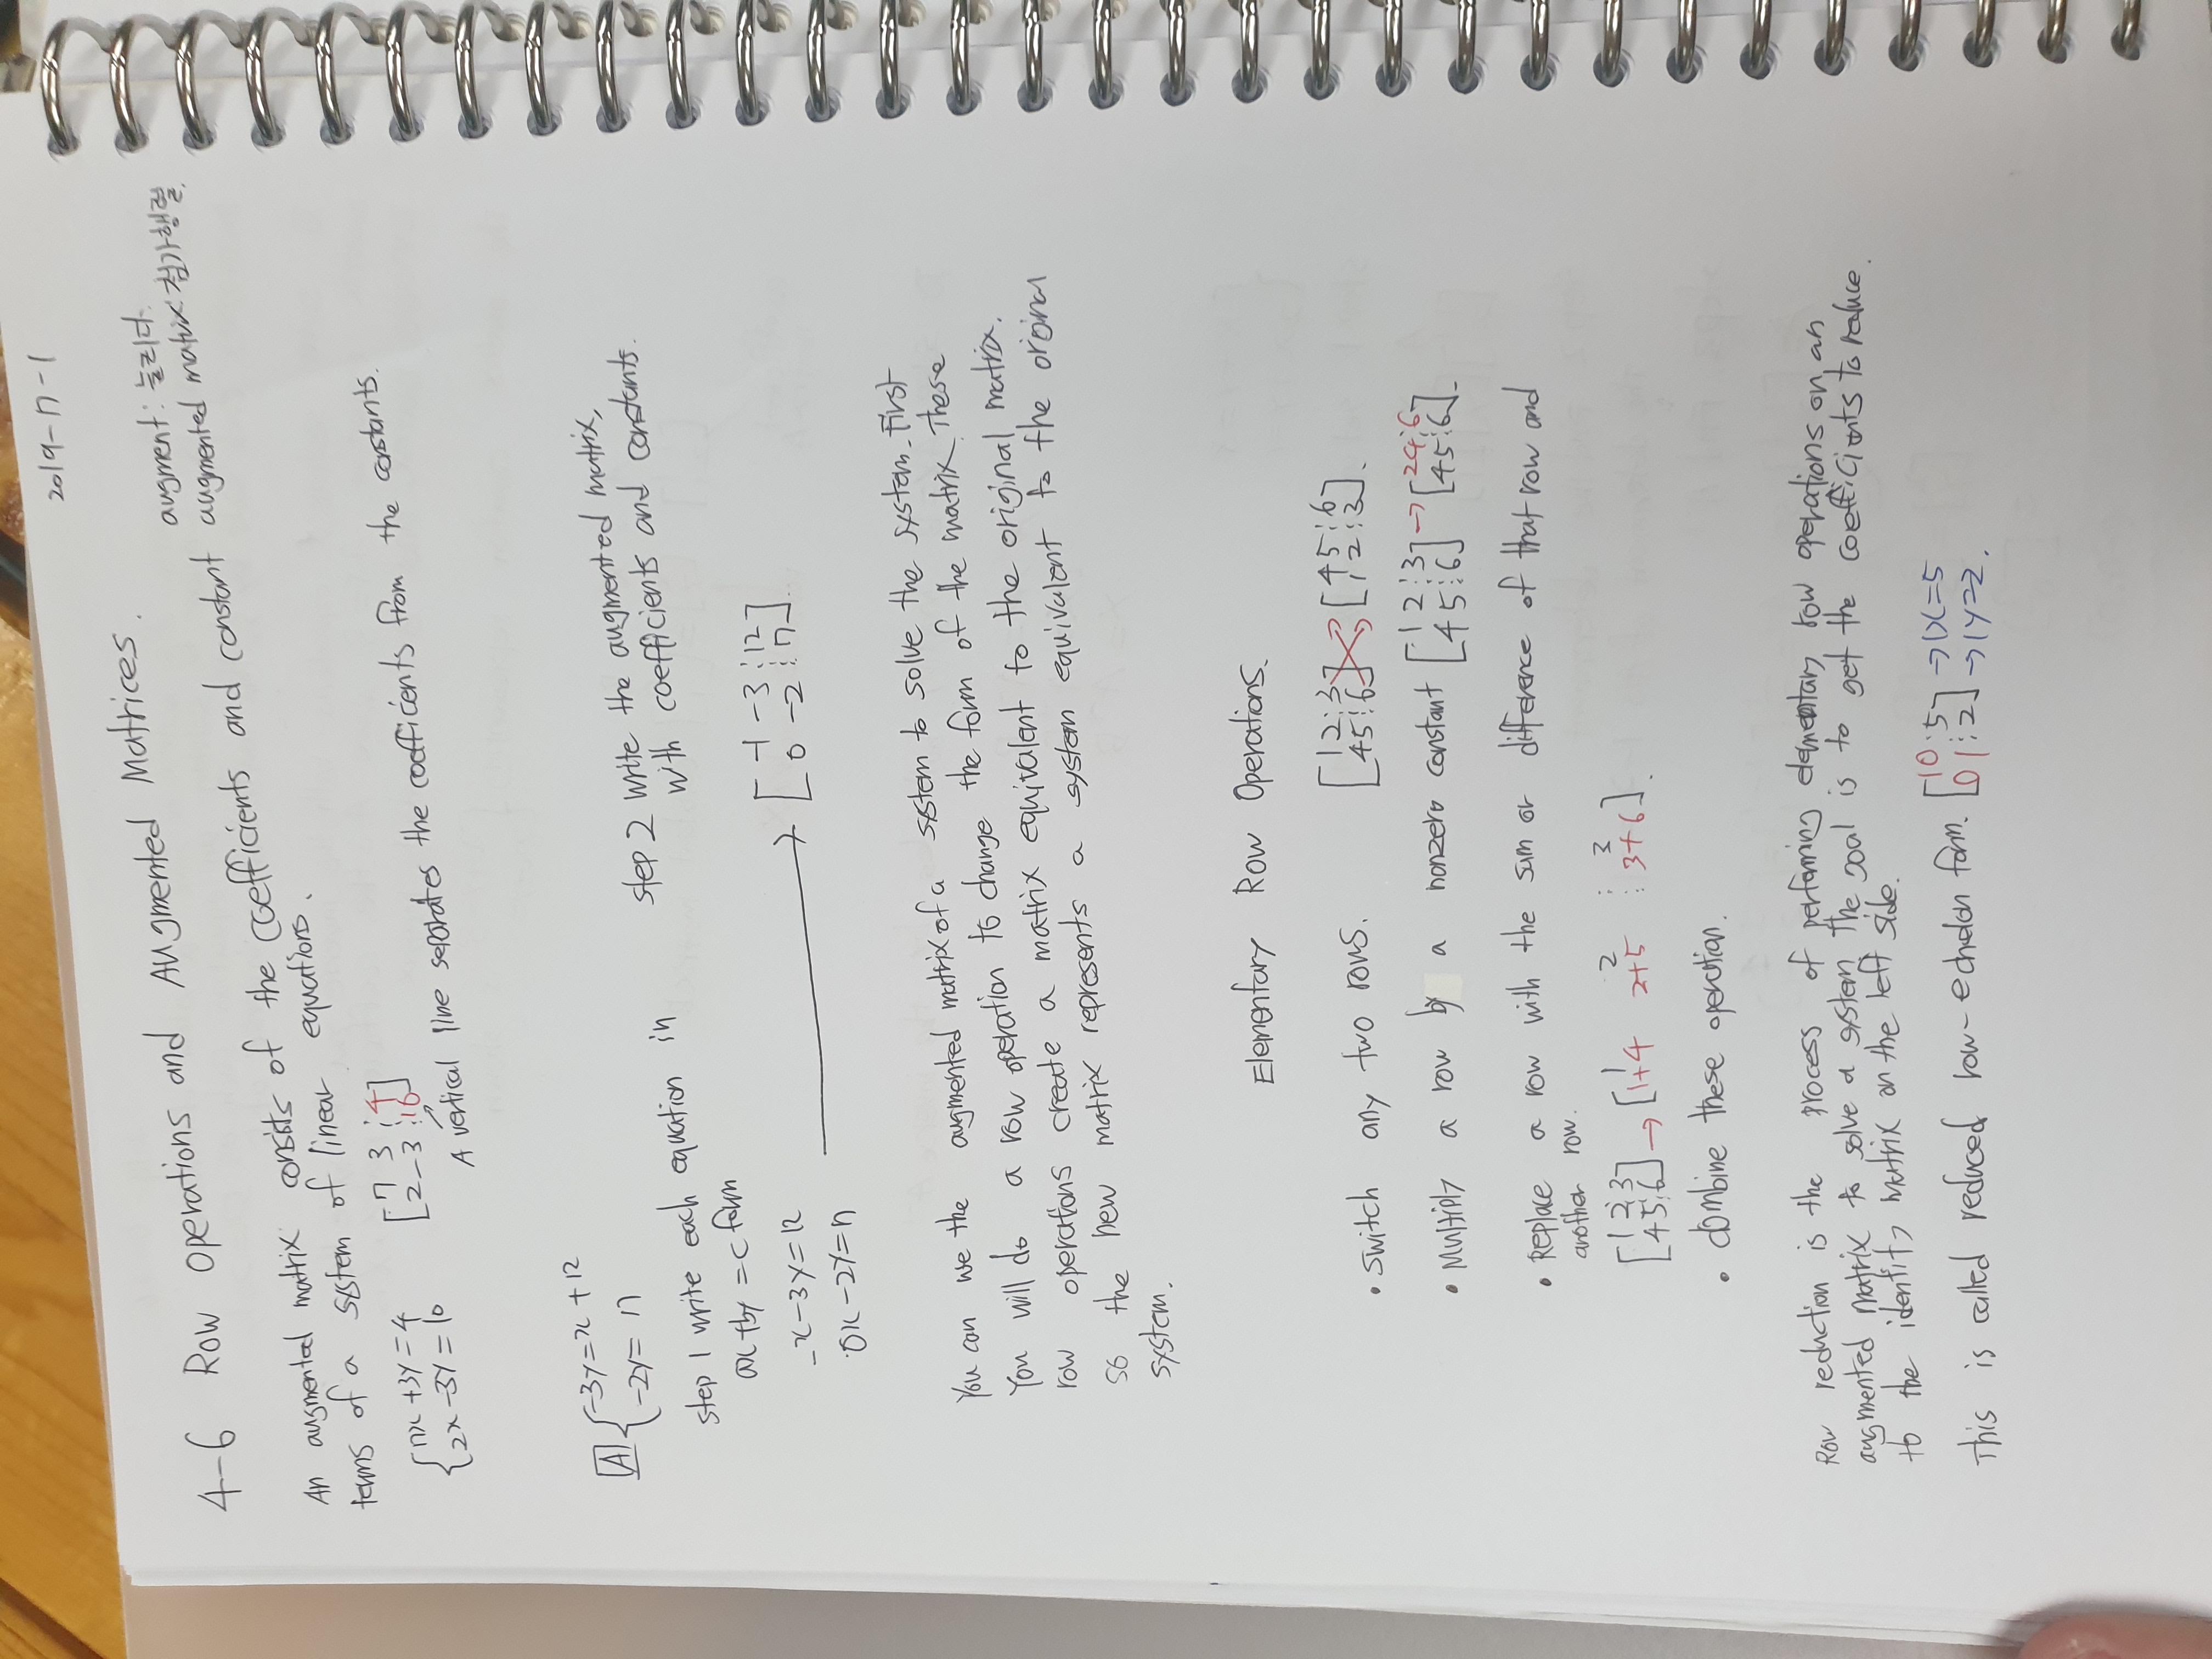 2019-7-1
4-6 Row operations and Augmented Matrices.
augment: 늘리다.
augmented matrix: 첨가행렬.
An augmented matrix consists of the coefficients and constant
terms of a system of linear equations.
{7x+3y=4
{2x-3y=10
[7 3 ⋮ 4]
[2 -3 ⋮ 10]
A vertical line separates the coefficients from the constants.
[A] {-3y=x+12
{-2y=7
step 1 write each equation in
ax+by=c form
step 2 write the augmented matrix,
with coefficients and constants.
-x-3y=12
0x-2y=7
→ [-1 -3 ⋮ 12]
[0 -2 ⋮ 7]
You can use the augmented matrix of a system to solve the system. First
You will do a row operation to change the form of the matrix. These
row operations create a matrix equivalent to the original matrix.
so the new matrix represents a system equivalent to the orginal
system.
Elementary Row Operations.
• switch any two rows. [1 2 ⋮ 3] → [4 5 ⋮ 6]
[4 5 ⋮ 6] → [1 2 ⋮ 3].
• Multiply a row by a nonzero constant [1 2 ⋮ 3] → [2 4 ⋮ 6]
[4 5 ⋮ 6] [4 5 ⋮ 6].
• Replace a row with the sum or difference of that row and
another row.
[1 2 ⋮ 3] → [1 2 ⋮ 3]
[4 5 ⋮ 6] [1+4 2+5 ⋮ 3+6].
• combine these operation.
Row reduction is the process of performing elementary row operations on an
augmented matrix to solve a system the goal is to get the coefficients to reduce
to the identity matrix on the left side.
This is called reduced row-echelon form. [1 0 ⋮ 5] → 1x=5
[0 1 ⋮ 2] → 1y=2.